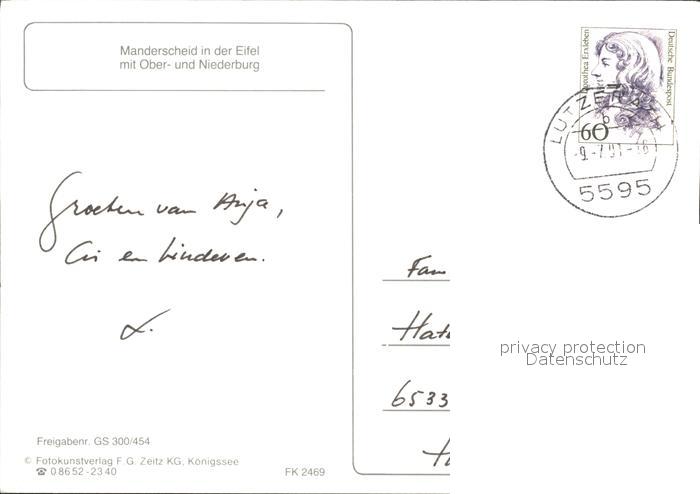 Manderscheid in der Eifel
mit Ober- und Niederburg
Dorothea Erxleben
Deutsche Bundespost
60
LUTZERATH
b
-9.-7.91-18
5595
Groeten van Anja,
Cis en kinderen.
L.
Fam
Hat
6533
H
privacy protection
Datenschutz
Freigabenr. GS 300/454
© Fotokunstverlag F. G. Zeitz KG, Königssee
☎ 0 86 52 - 23 40
FK 2469